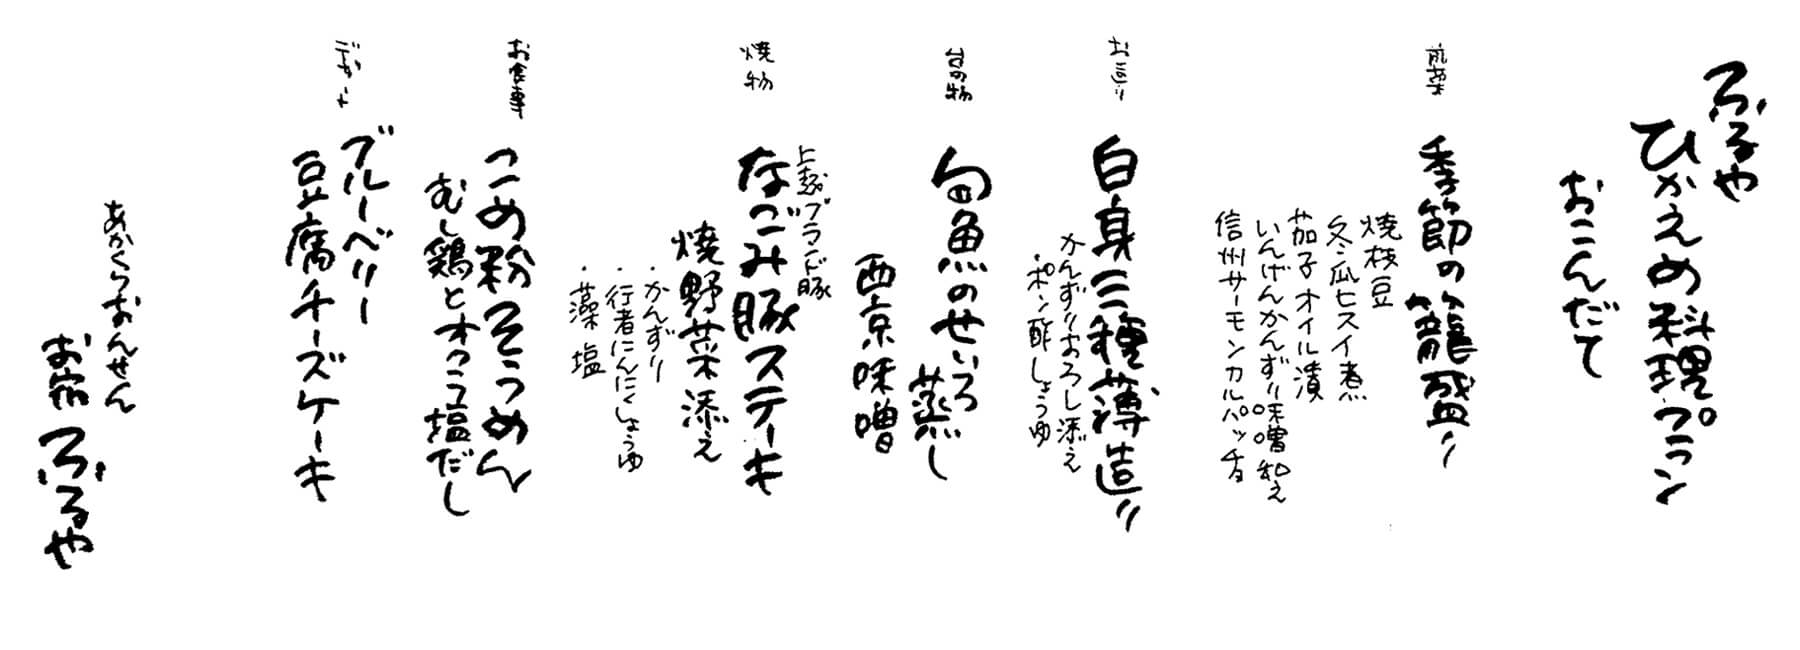 ふるや
ひかえめ料理プラン
おこんだて
前菜
季節の籠盛り
焼枝豆
冬瓜ヒスイ煮
茄子オイル漬
いんげんかんずり味噌和え
信州サーモンカルパッチョ
お造り
白身三種薄造り
かんずりおろし添え
・ポン酢しょうゆ
台の物
旬魚のせいろ蒸し
西京味噌
焼物
上越ブランド豚
なごみ豚ステーキ
焼野菜添え
・かんずり
・行者にんにくしょうゆ
・藻塩
お食事
こめ粉そうめん
むし鶏とオクラ塩だし
デザート
ブルーベリー
豆腐チーズケーキ
あかくらおんせん
お宿 ふるや